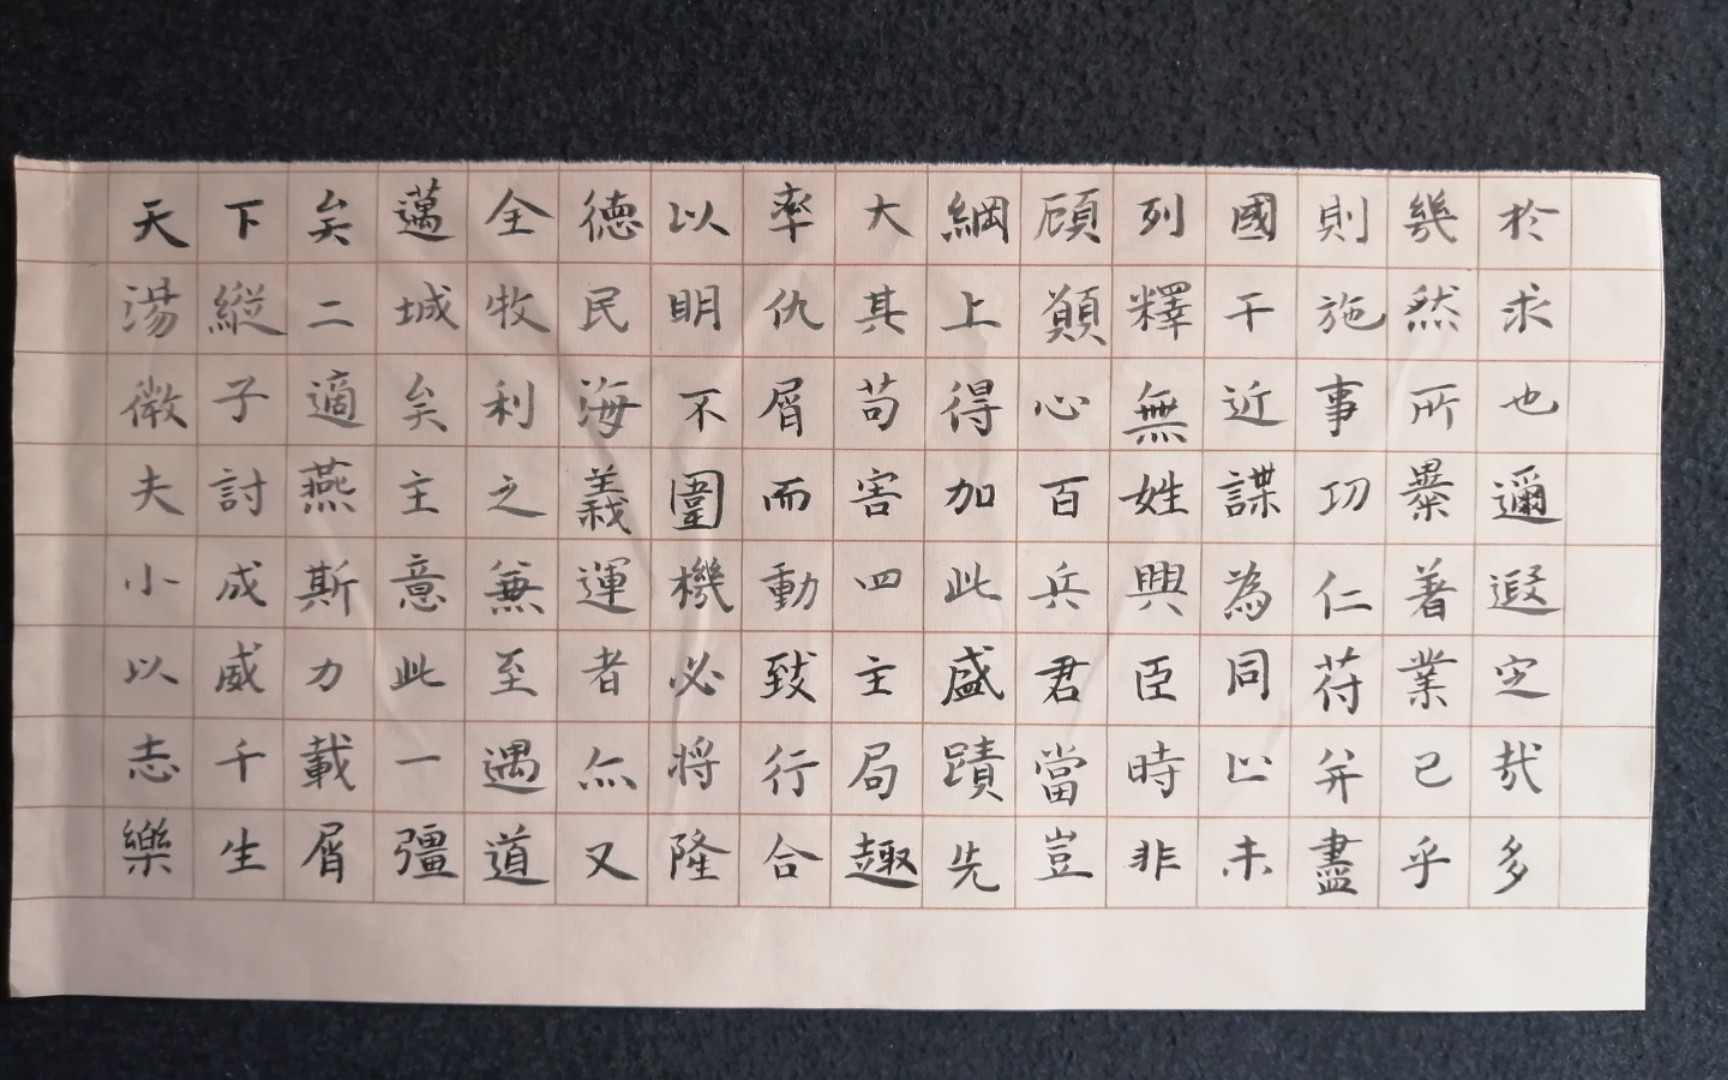 於求也邇遐定哉多
幾然所暴著業已乎
則施事功仁符并盡
國干近謀為同止未
列釋無姓興臣時非
顧願心百兵君當豈
綱上得加此盛蹟先
大其苟害四主局趣
率仇屑而動致行合
以明不圍機必将隆
德民海義運者亦又
全牧利之兼至遇道
邁城矣主意此一彊
矣二適燕斯力載屑
下縱子討成威千生
天湯微夫小以志樂